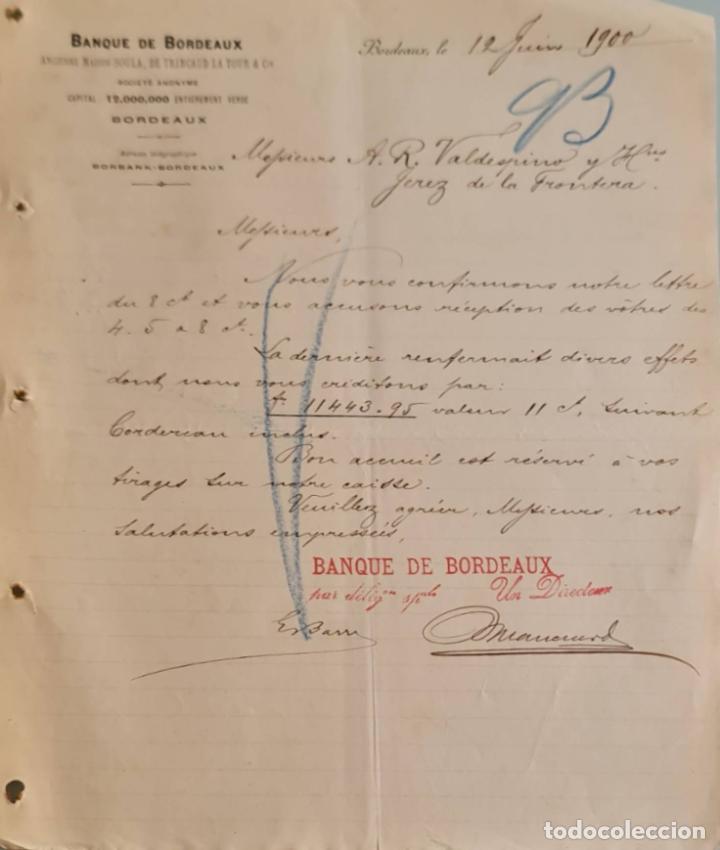 BANQUE DE BORDEAUX
ANCIENNE MAISON SOULA, DE TRINCAUD LA TOUR & Cie
SOCIÉTÉ ANONYME
CAPITAL 12,000,000 ENTIÈREMENT VERSÉ
BORDEAUX
Adresse télégraphique
BORBANK-BORDEAUX
Bordeaux, le 12 Juin 1900
B
Messieurs A. R. Valdespino y Hnos
Jerez de la Frontera.
Messieurs,
Nous vous confirmons notre lettre
du 8 ct et vous accusons réception des vôtres des
4. 5 & 8 ct.
La dernière renfermait divers effets
dont nous vous créditons par:
f. 11443.95 valeur 11 ct, suivant
bordereau inclus.
Bon accueil est réservé à vos
tirages sur notre caisse.
Veuillez agréer, Messieurs, nos
salutations empressées,
BANQUE DE BORDEAUX
par délégon spale Un Directeur
todocoleccion